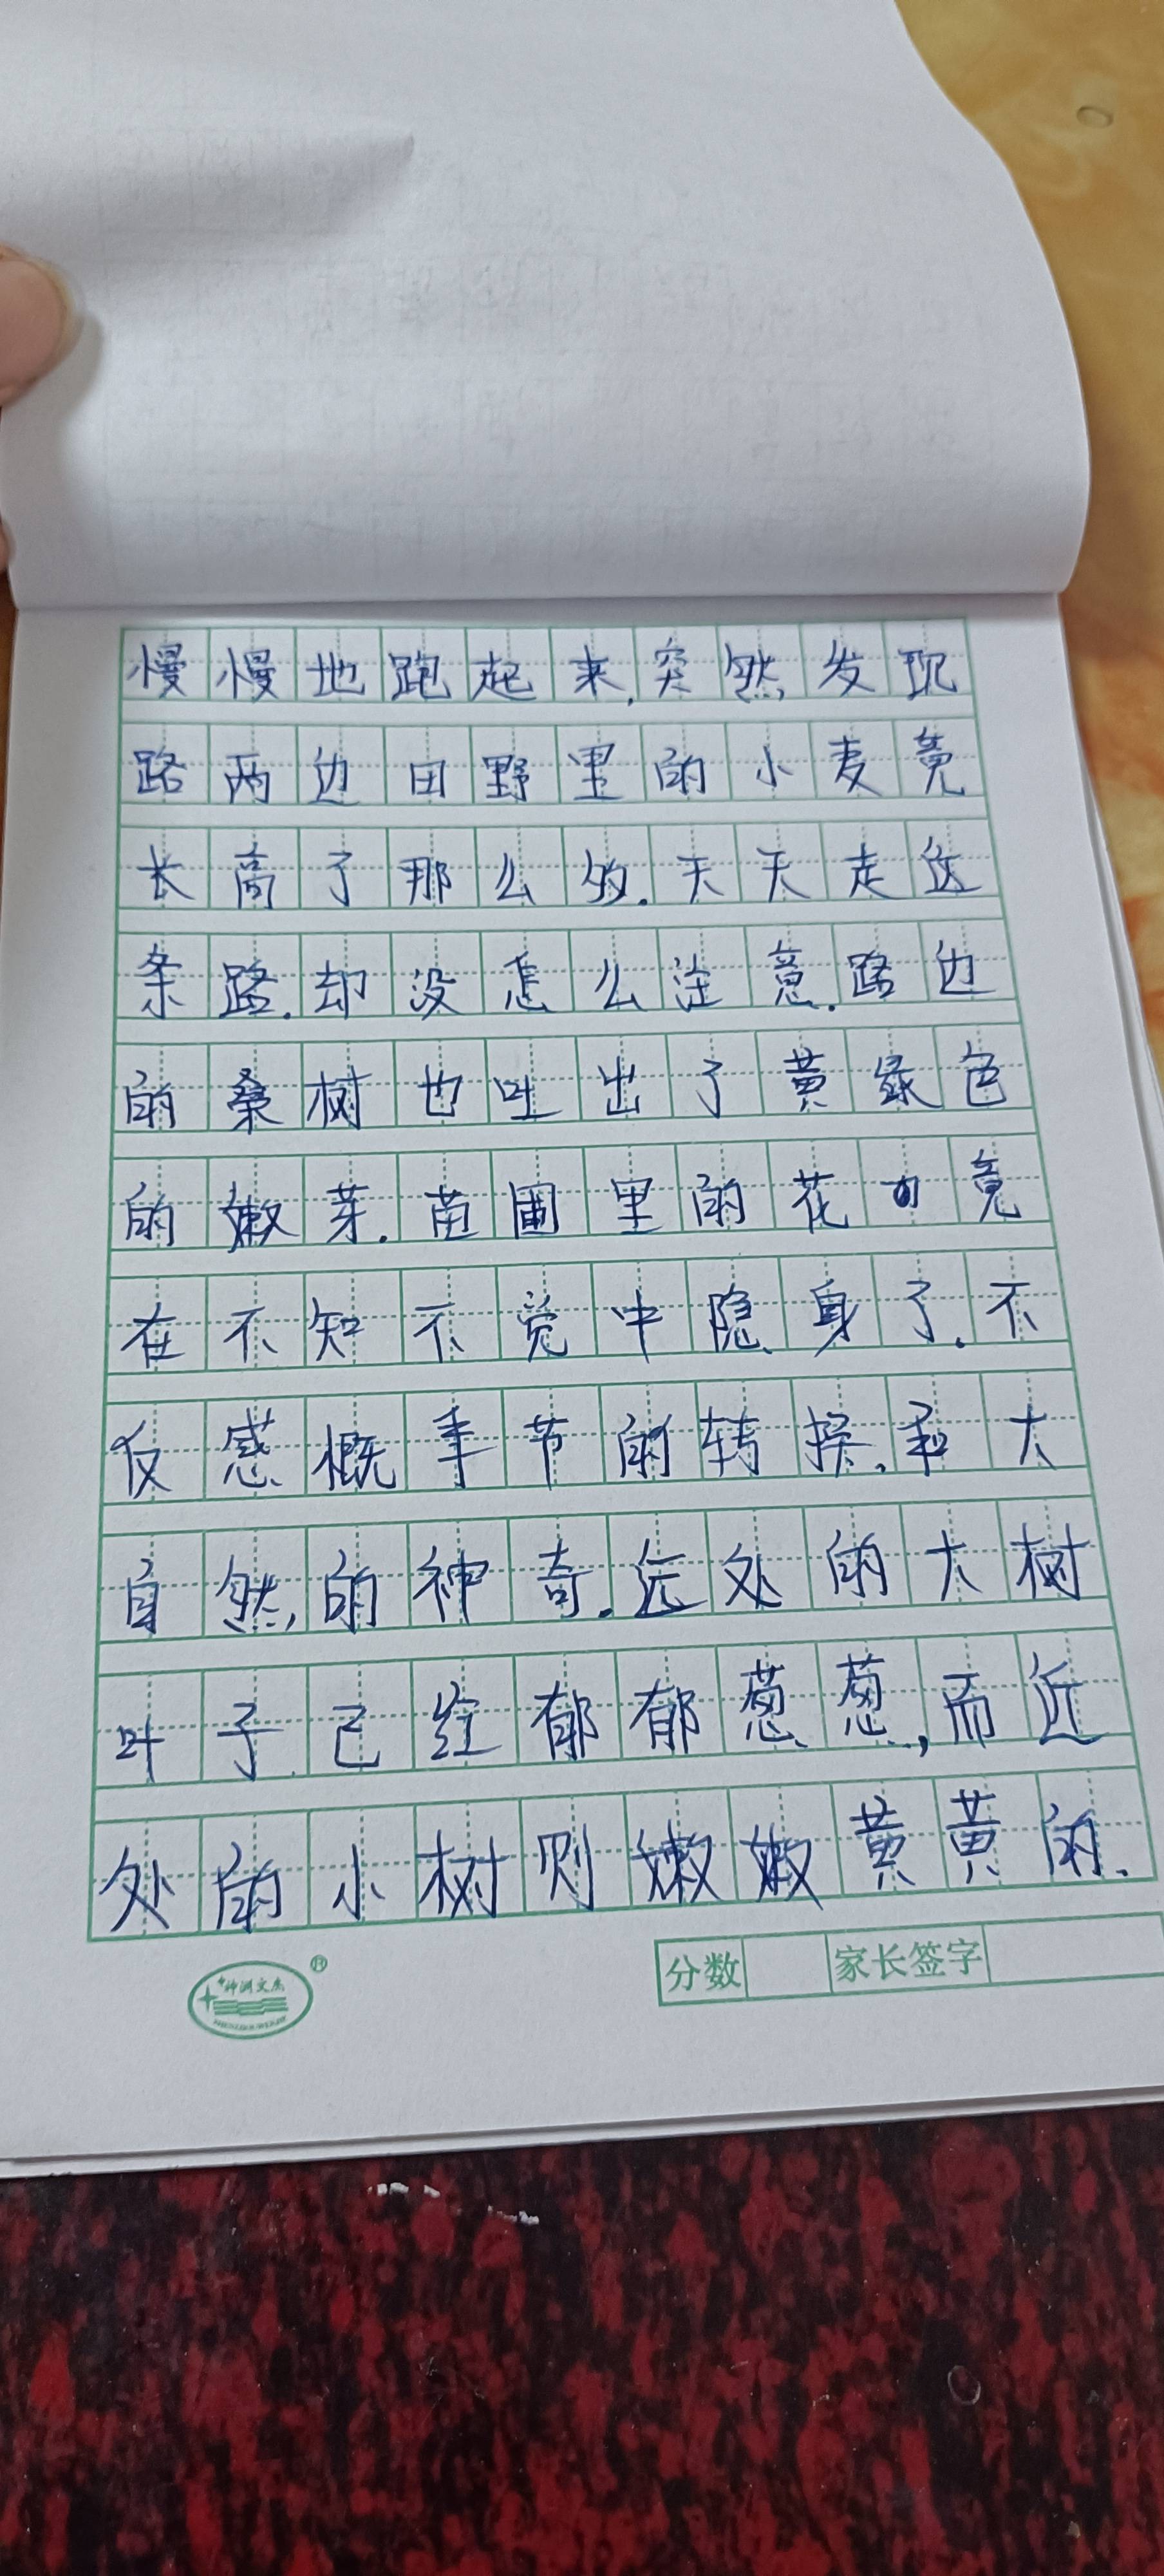 慢慢地跑起来.突然发现
路两边田野里的小麦竟
长高了那么多.天天走这
条路.却没怎么注意.路边
的桑树也吐出了黄绿色
的嫩芽.苗圃里的花 竟
在不知不觉中隐身了.不
仅感概季节的转换.和大
自然的神奇.远处的大树
叶子已经郁郁葱葱,而近
处的小树则嫩嫩黄黄的.
分数 家长签字